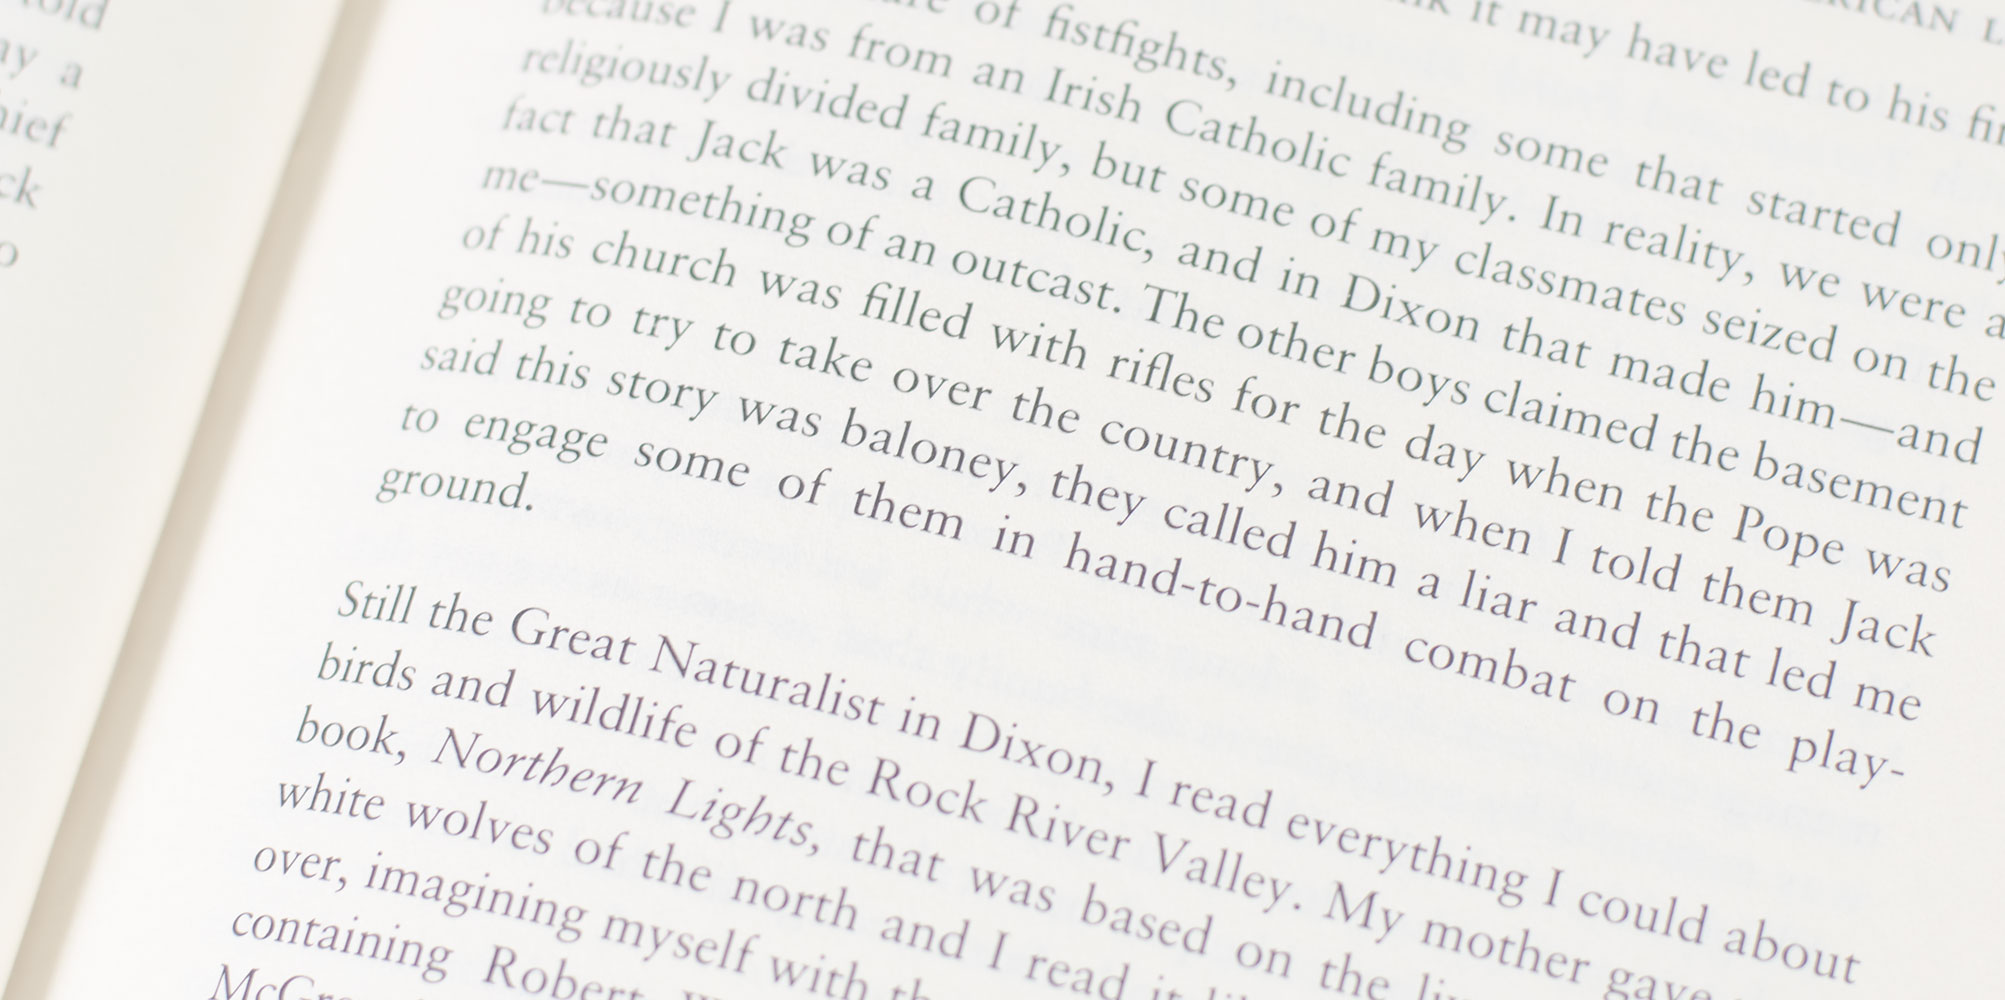 told
ay a
hief
ck
o
it may have led to his
of fistfights, including some that started only
because I was from an Irish Catholic family. In reality, we were a
religiously divided family, but some of my classmates seized on the
fact that Jack was a Catholic, and in Dixon that made him—and
me—something of an outcast. The other boys claimed the basement
of his church was filled with rifles for the day when the Pope was
going to try to take over the country, and when I told them Jack
said this story was baloney, they called him a liar and that led me
to engage some of them in hand-to-hand combat on the play-
ground.
Still the Great Naturalist in Dixon, I read everything I could about
birds and wildlife of the Rock River Valley. My mother gave
book, Northern Lights, that was based on the
white wolves of the north and I read it
over, imagining myself with
containing Robert